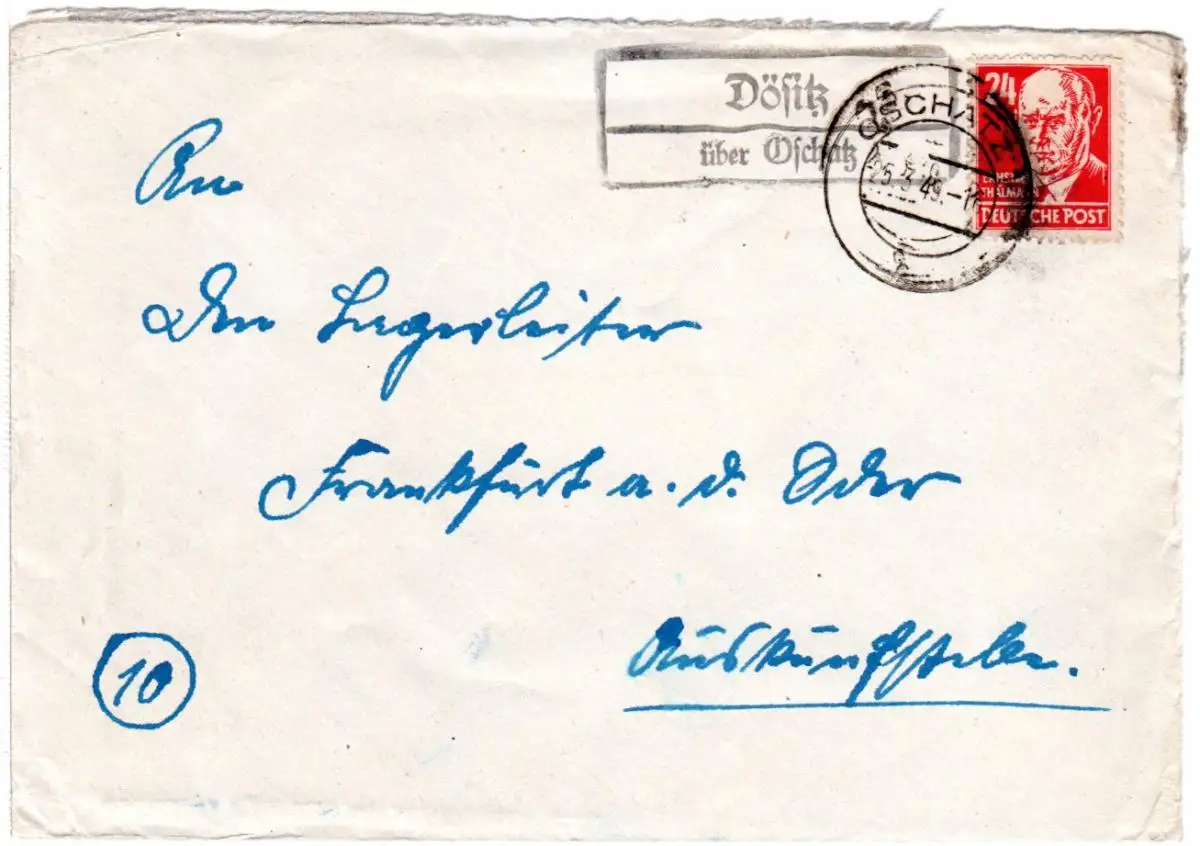 Dösitz
über Oschatz
OSCHATZ
25.3.49.-1
24
ERNST
THÄLMANN
DEUTSCHE POST
An
Den Lagerleiter
Frankfurt a. d. Oder
Auskunfstelle.
10